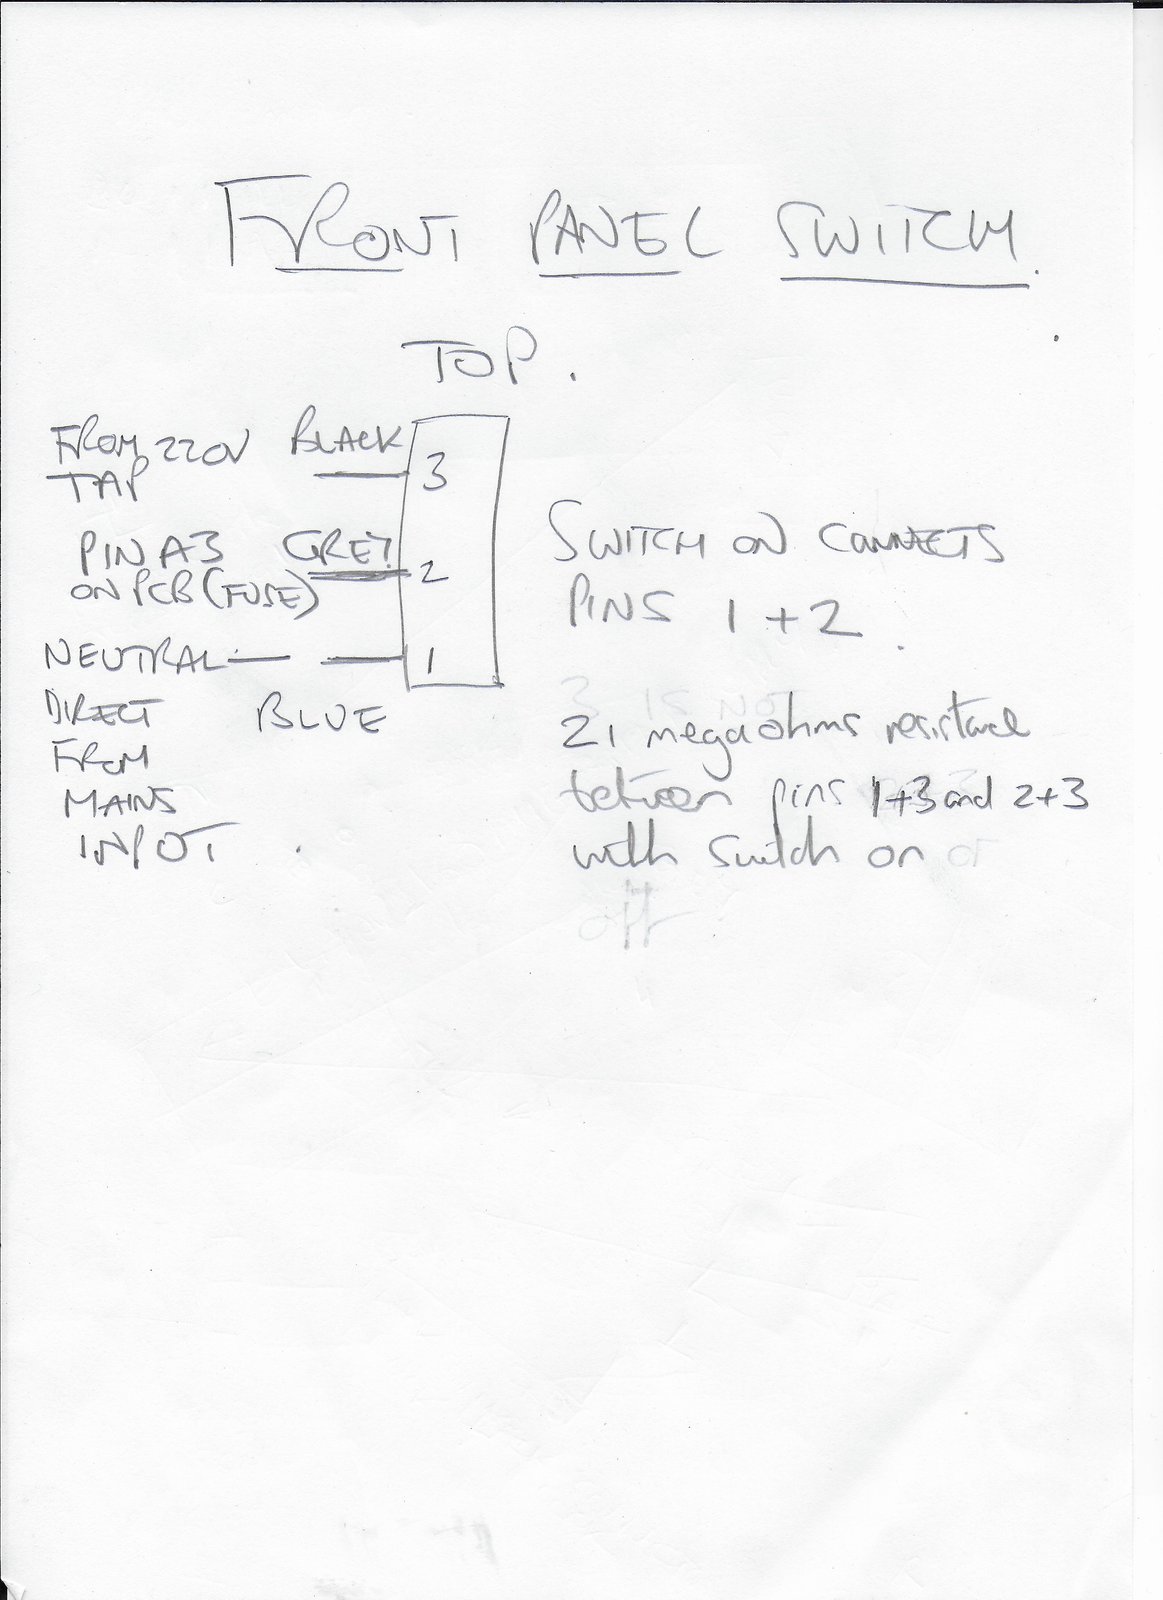 FRONT PANEL SWITCH.
TOP.
FROM 220V BLACK 3
TAP
PIN A3 GREY 2
ON PCB (FUSE)
NEUTRAL 1
DIRECT BLUE
FROM
MAINS
INPUT
SWITCH ON CONNECTS
PINS 1 + 2.
3 IS NOT
21 megaohms resistance
between pins 1+3 and 2+3
with switch on or
off